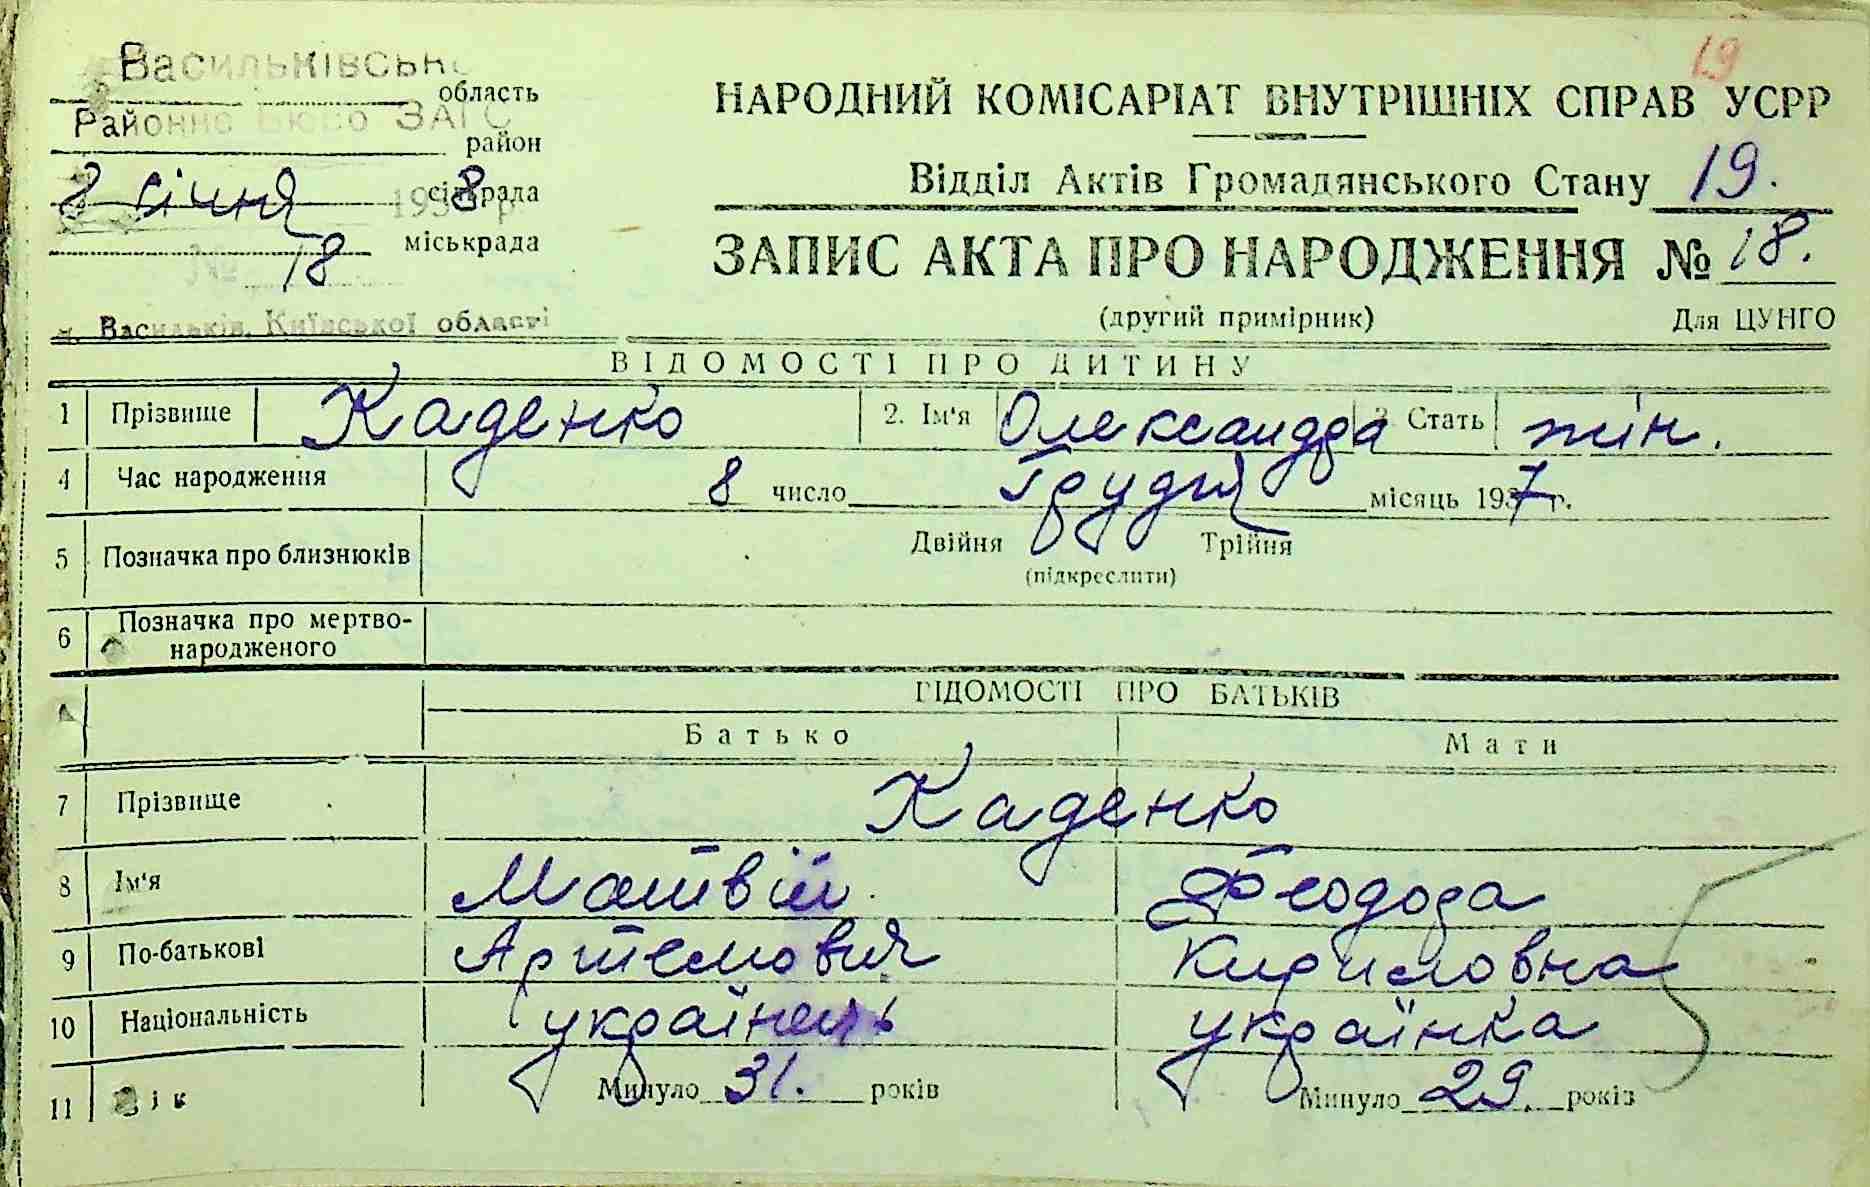 19
Васильківське
область
Районне Бюро ЗАГС
район
8 січня 1938 р.
сільрада
№ 18
міськрада
м. Васильків, Київської області
НАРОДНИЙ КОМІСАРІАТ ВНУТРІШНІХ СПРАВ УСРР
Відділ Актів Громадянського Стану 19.
ЗАПИС АКТА ПРО НАРОДЖЕННЯ № 18.
(другий примірник) Для ЦУНГО
ВІДОМОСТІ ПРО ДИТИНУ
1 Прізвище Каденко 2. Ім'я Олександра 3 Стать жін.
4 Час народження 8 число Грудня місяць 1937 г.
5 Позначка про близнюків Двійня Трійня
(підкреслити)
6 Позначка про мертво-
народженого
ВІДОМОСТІ ПРО БАТЬКІВ
Батько Мати
7 Прізвище Каденко
8 Ім'я Матвій Феодора
9 По-батькові Артемович Кириловна
10 Національність українець українка
11 Вік Минуло 31. років Минуло 29. років